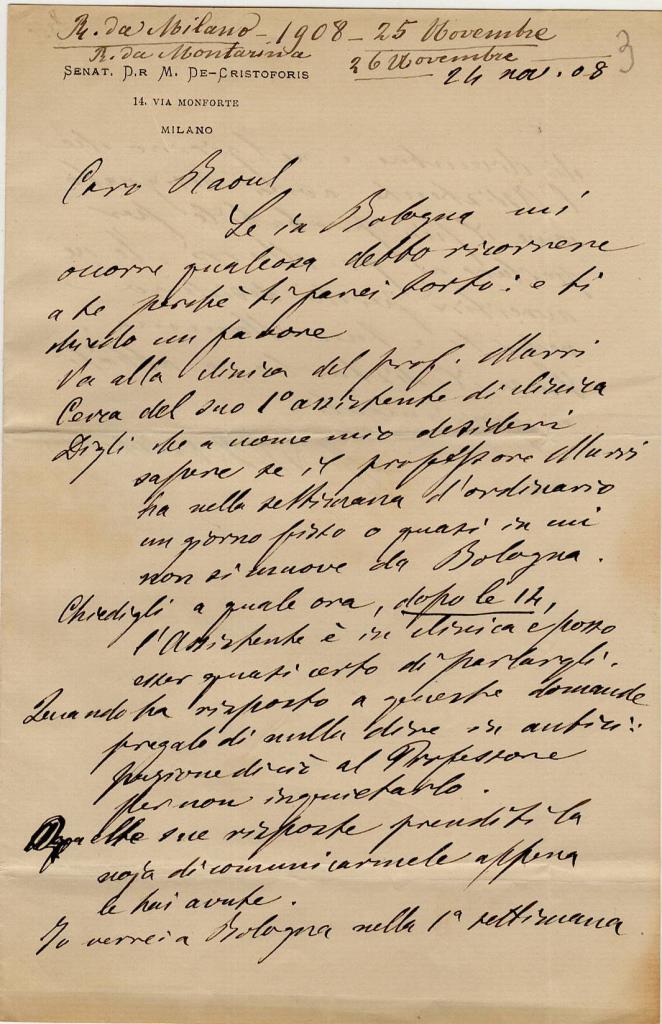 R. da Milano - 1908 - 25 Novembre
R. da Montarina
26 Novembre
3
SENAT. D.R M. DE-CRISTOFORIS
24 nov. 08
14. VIA MONFORTE
MILANO
Caro Raoul
Se in Bologna mi
occorre qualcosa debbo ricorrere
a te perchè ti farei torto: e ti
chiedo un favore
Va alla clinica del prof. Murri
Cerca del suo 1º assistente di clinica
Digli che a nome mio desideri
sapere se il professore Murri
ha nella settimana d'ordinario
un giorno fisso o quasi in cui
non si muove da Bologna.
Chiedigli a quale ora, dopo le 14,
l'Assistente è in clinica e posso
esser quasi certo di parlargli.
Quando ha risposto a queste domande
pregalo di nulla dire in antici:
pazione di ciò al Professore
per non inquietarlo.
elle sue risposte prenditi la
noja di comunicarmele appena
le hai avute.
Io verrei a Bologna nella 1ª settimana